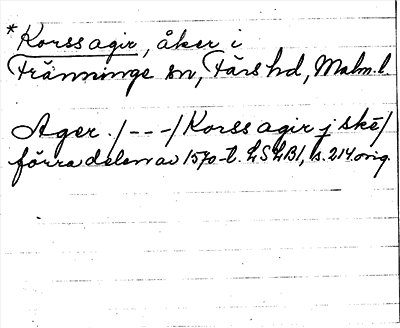 *Korssagir, åker i
Tränninge sn, Färs hd, Malm. l.
Ager. /---/ Korssagir j skē/
förra delen av 1570-t. LSLB1, s. 214 orig.